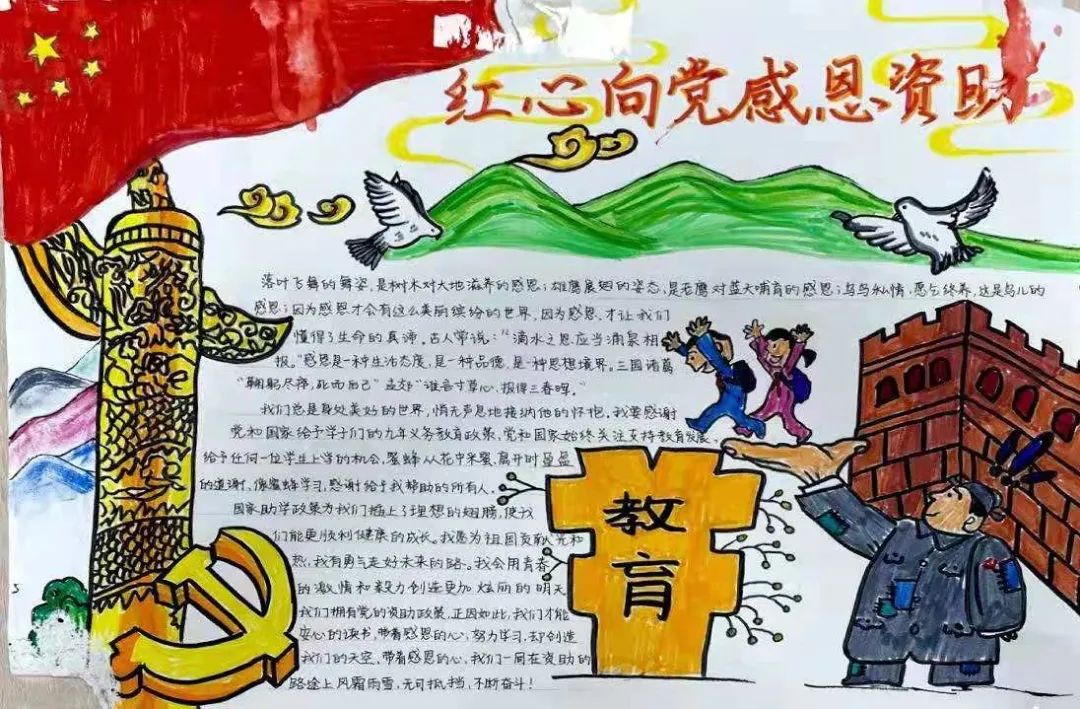 红心向党感恩资助
落叶飞舞的舞姿,是树木对大地滋养的感恩;雄鹰展翅的姿态,是老鹰对蓝天哺育的感恩;乌鸟私情,愿乞终养,这是鸟儿的
感恩;因为感恩才会有这么美丽缤纷的世界,因为感恩,才让我们
懂得了生命的真谛。古人常说:“滴水之恩应当涌泉相
报。”感恩是一种生活态度,是一种品德,是一种思想境界。三国诸葛
“鞠躬尽瘁,死而后已”孟郊“谁言寸草心,报得三春晖。”
我们总是身处美好的世界,悄无声息地接纳他的怀抱。我要感谢
党和国家给予学子们的九年义务教育政策,党和国家始终关注支持教育发展,
给予任何一位学生上学的机会,蜜蜂从花中采蜜,离开时
的道谢,像蜜蜂学习,感谢给予我帮助的所有人,
国家助学政策为我们插上了理想的翅膀,使我
们能更顺利健康的成长。我愿为祖国贡献光和
热,我有勇气走好未来的路。我会用青春
的激情和毅力创造更加炫丽的明天
我们拥有党的资助政策,正因如此,我们才能
安心的读书,带着感恩的心,努力学习,却创造
我们的天空,带着感恩的心,我们一同在资助的
路途上风霜雨雪,无可抵挡,不断奋斗!
教
育